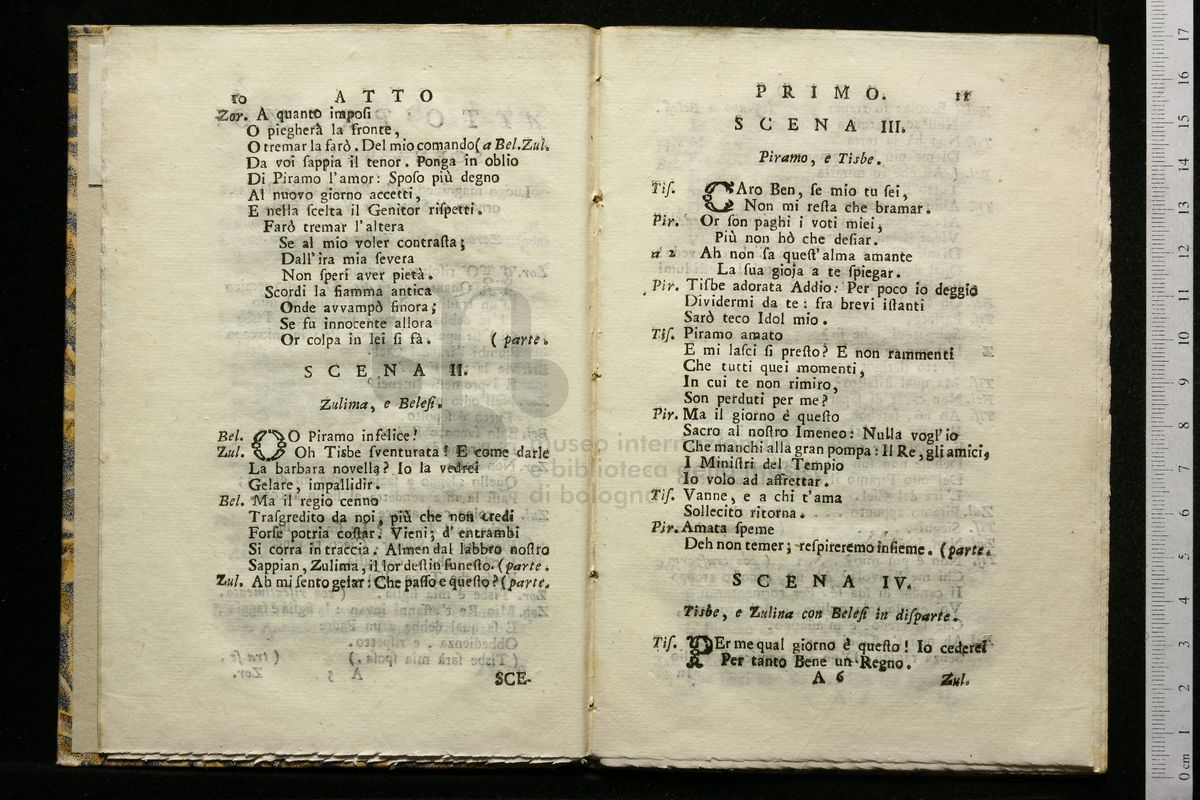 10 ATTO
Zor. A quanto imposi
O piegherà la fronte,
O tremar la farò. Del mio comando (a Bel. Zul.
Da voi sappia il tenor. Ponga in oblio
Di Piramo l'amor: Sposo più degno
Al nuovo giorno accetti,
E nella scelta il Genitor rispetti.
Farò tremar l'altera
Se al mio voler contrasta;
Dall'ira mia severa
Non speri aver pietà.
Scordi la fiamma antica
Onde avvampò finora;
Se fu innocente allora
Or colpa in lei si fà. (parte.
SCENA II.
Zulima, e Belesi.
Bel. OO Piramo infelice!
Zul. Oh Tisbe sventurata! E come darle
La barbara novella? Io la vedrei
Gelare, impallidir.
Bel. Ma il regio cenno
Trasgredito da noi, più che non credi
Forse potria costar. Vieni; d'entrambi
Si corra in traccia. Almen dal labbro nostro
Sappian, Zulima, il lor destin funesto. (parte.
Zul. Ah mi sento gelar: Che passo e questo? (parte.
SCE-
PRIMO. 11
SCENA III.
Piramo, e Tisbe.
Tis. CAro Ben, se mio tu sei,
Non mi resta che bramar.
Pir. Or son paghi i voti miei,
Più non hò che desiar.
a 2 Ah non sa quest'alma amante
La sua gioja a te spiegar.
Pir. Tisbe adorata Addio: Per poco io deggio
Dividermi da te: fra brevi istanti
Sarò teco Idol mio.
Tis. Piramo amato
E mi lasci si presto? E non rammenti
Che tutti quei momenti,
In cui te non rimiro,
Son perduti per me?
Pir. Ma il giorno è questo
Sacro al nostro Imeneo: Nulla vogl'io
Che manchi alla gran pompa: Il Re, gli amici,
I Ministri del Tempio
Io volo ad affrettar.
Tis. Vanne, e a chi t'ama
Sollecito ritorna.
Pir. Amata speme
Deh non temer; respireremo insieme. (parte.
SCENA IV.
Tisbe, e Zulina con Belesi in disparte.
Tis. PEr me qual giorno è questo! Io cederei
Per tanto Bene un Regno.
A 6 Zul.
museo internazionale
e biblioteca della musica
di bologna
0 cm 1 2 3 4 5 6 7 8 9 10 11 12 13 14 15 16 17